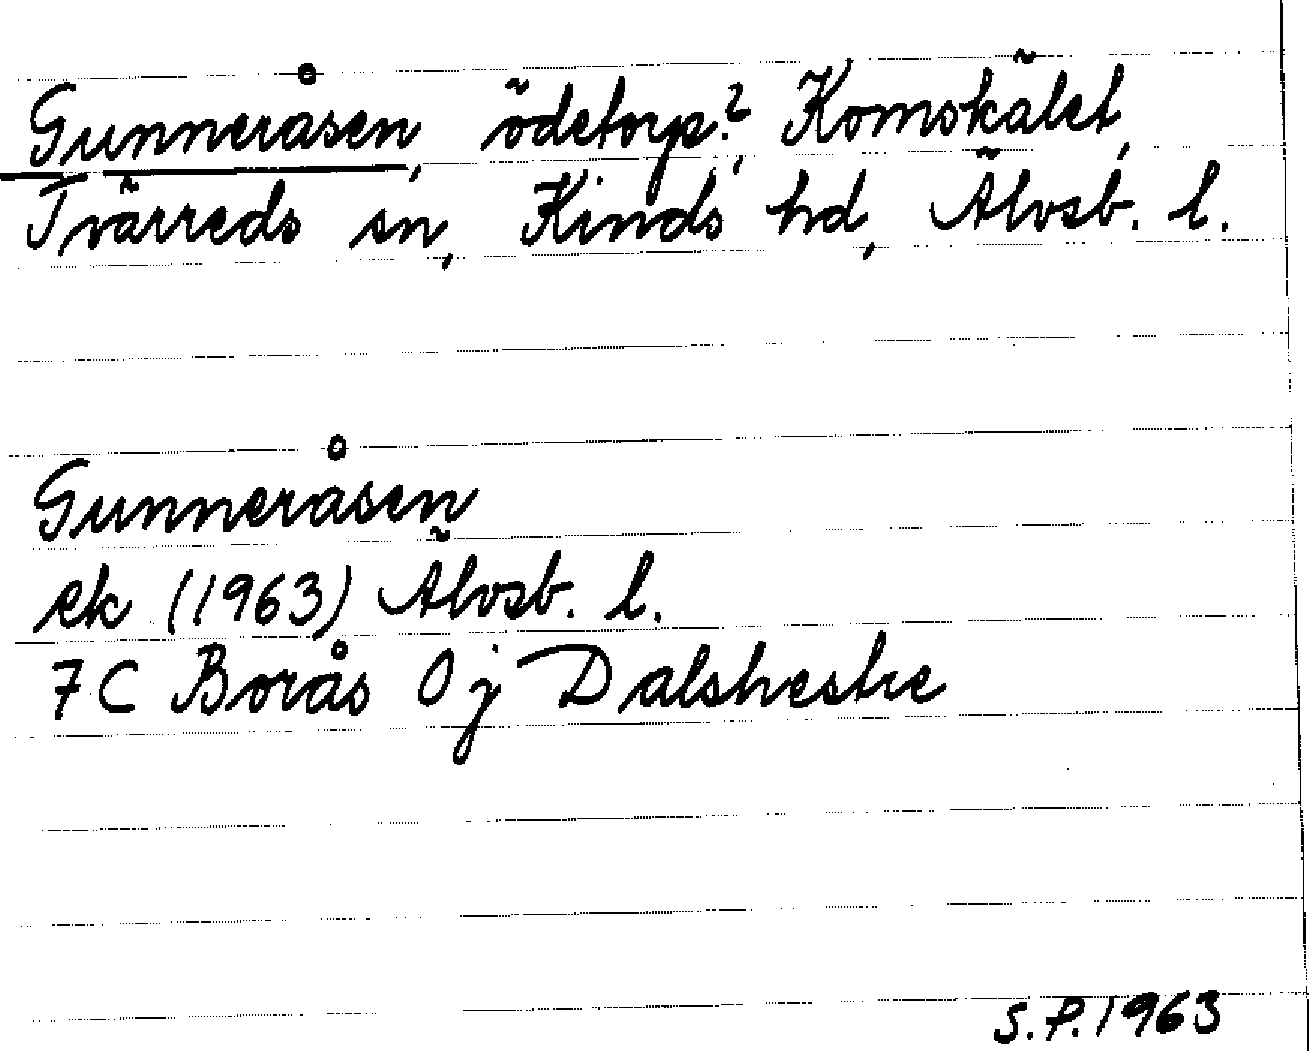 Gunneråsen, ödetorp?, Komskälet,
Tvärreds sn, Kinds hd, Älvsb. l.
Gunneråsen
ek (1963) Älvsb. l.
7C Borås 0j Dalshestre
S.P. 1963